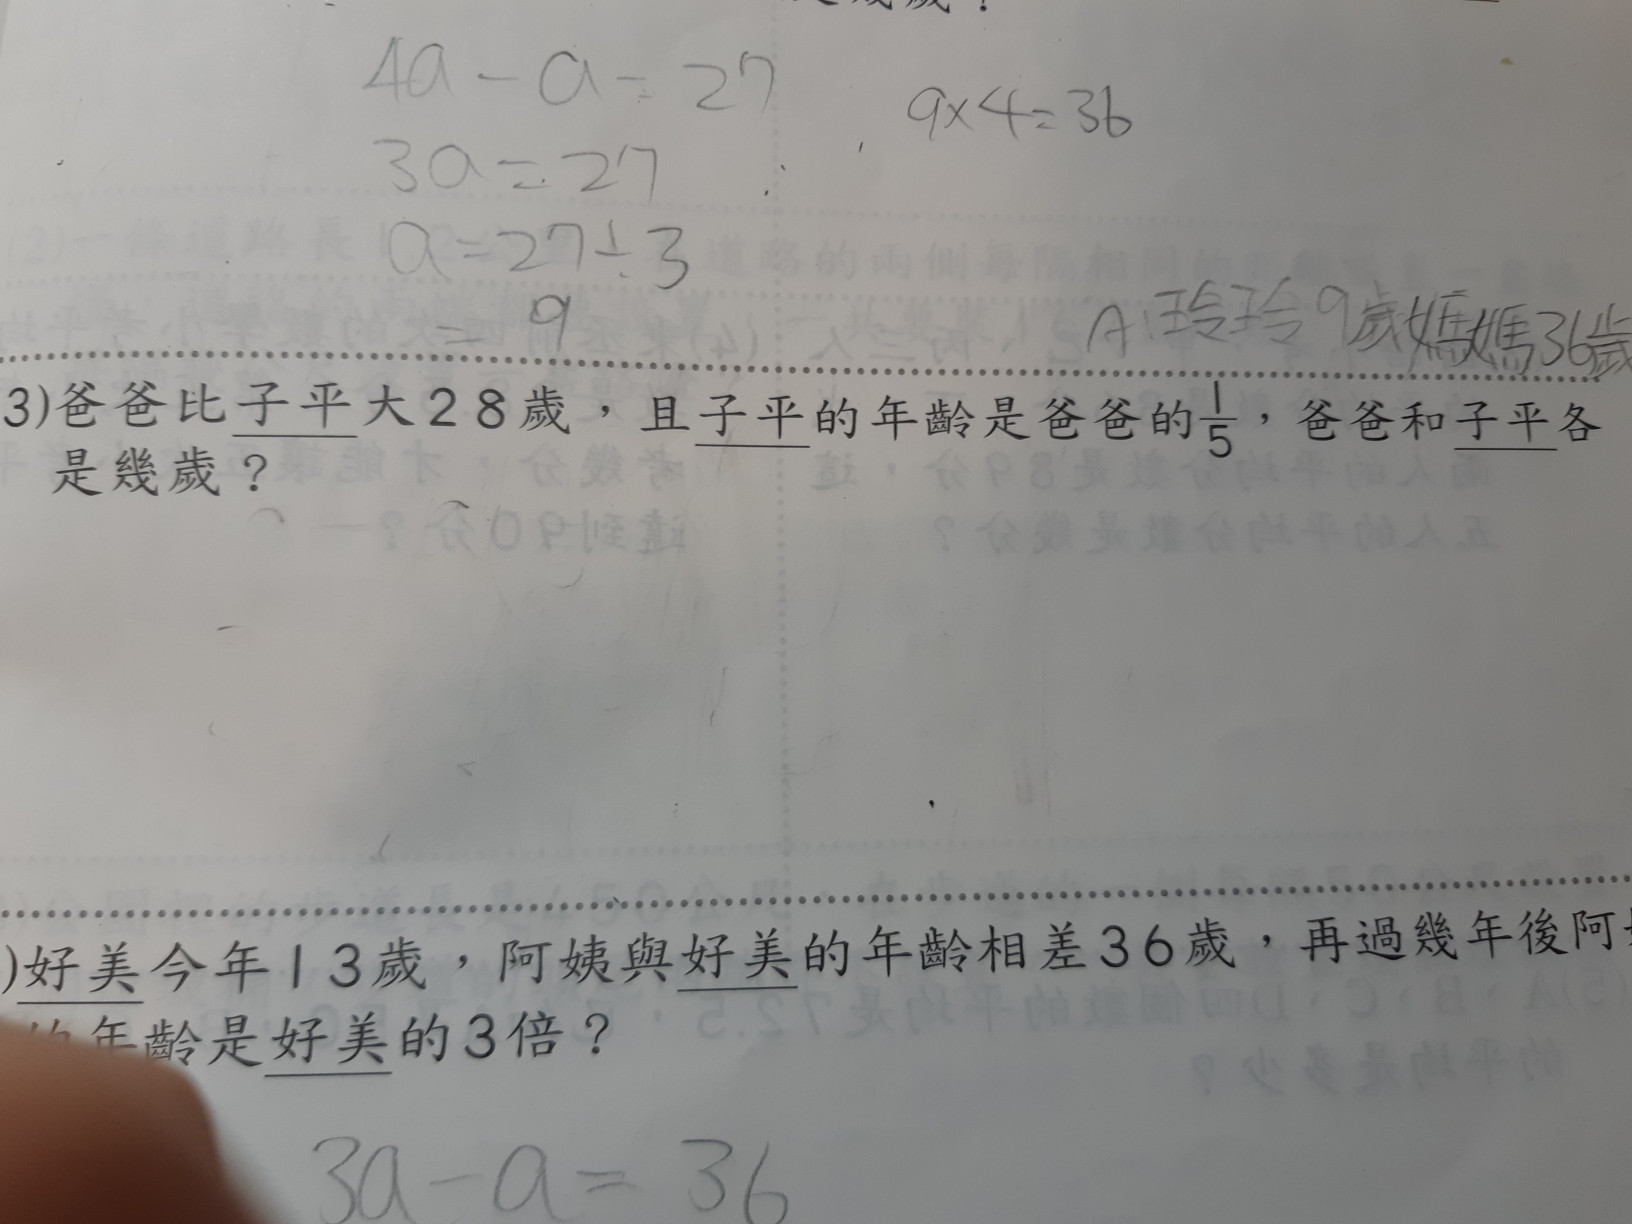 是幾歲？
4a-a=27
9×4=36
3a=27
a=27÷3
=9
A:玲玲9歲媽媽36歲
3)爸爸比子平大28歲，且子平的年齡是爸爸的1/5，爸爸和子平各
是幾歲？
)好美今年13歲，阿姨與好美的年齡相差36歲，再過幾年後阿
的年齡是好美的3倍？
3a-a=36